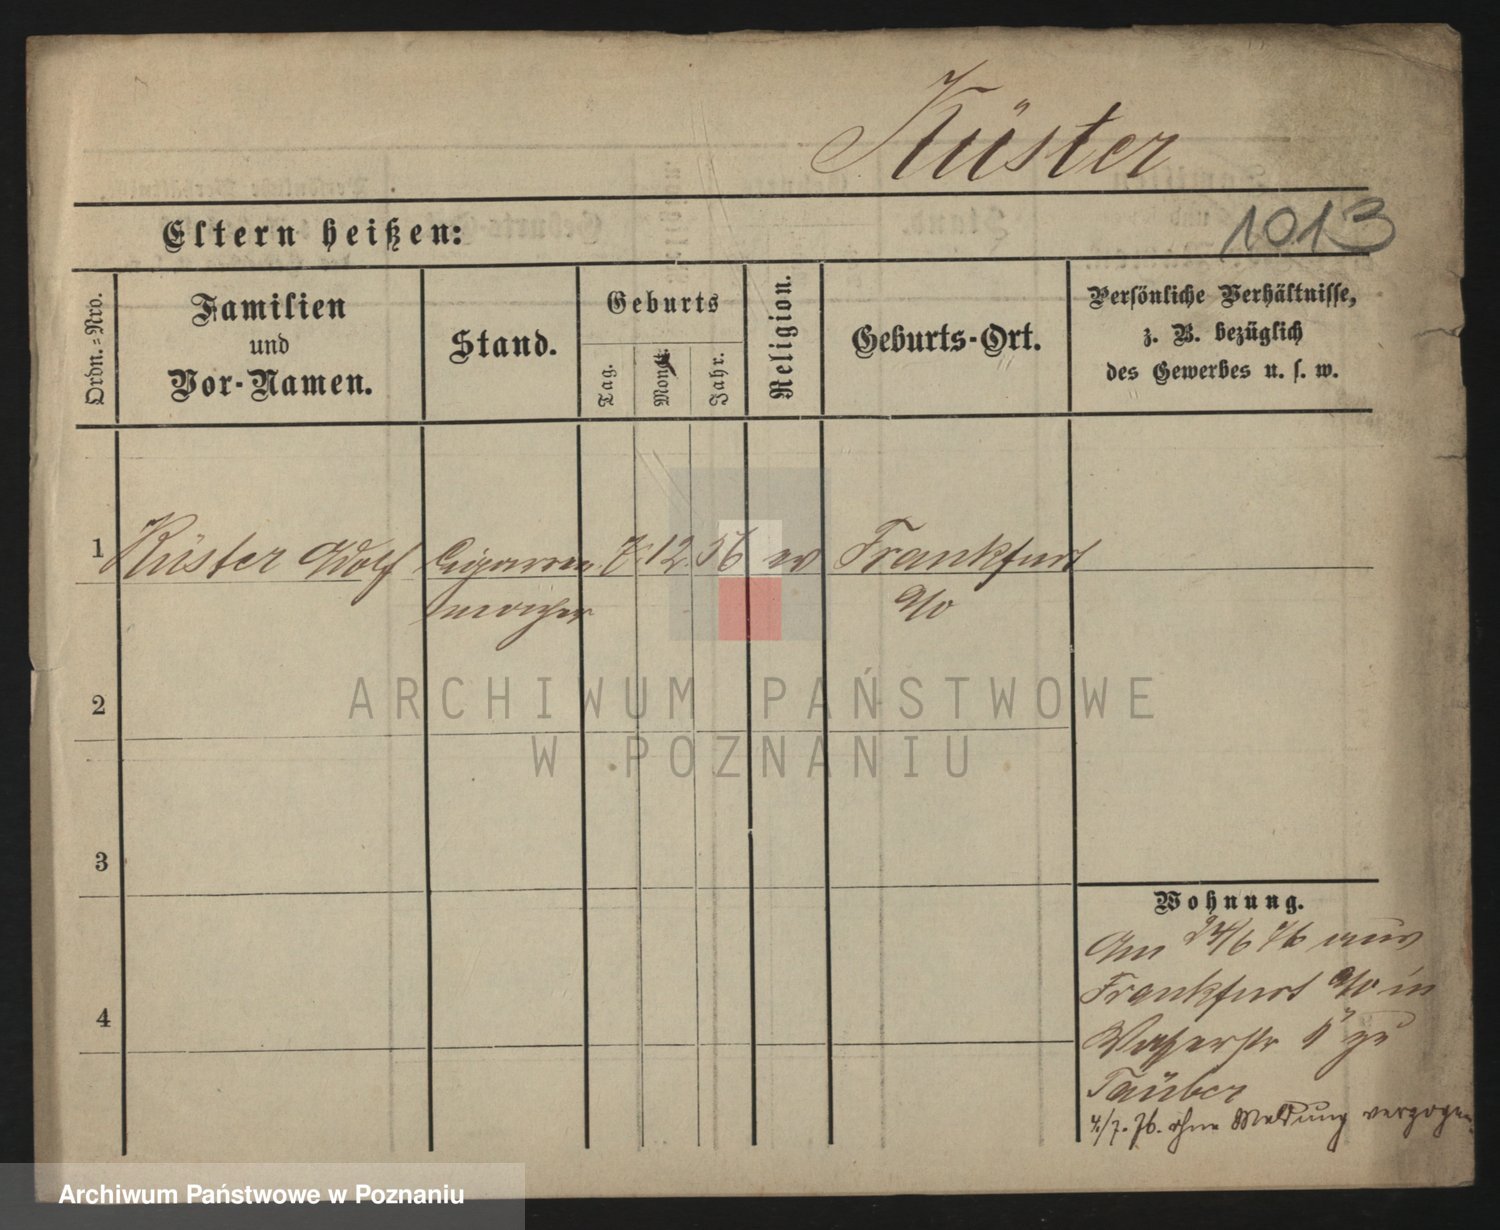 Küster
Eltern heißen:
1013
Ordn.-Nro.
Familien
und
Vor-Namen.
Stand.
Geburts
Tag.
Monat.
Jahr.
Religion.
Geburts-Ort.
Persönliche Verhältnisse,
z. B. bezüglich
des Gewerbes u. s. w.
1 Küster Adolf Cigarren 7. 12. 56 ev Frankfurt
macher a/o
2
ARCHIWUM PAŃSTWOWE
W POZNANIU
3
4
Wohnung.
Am 24/6 76 aus
Frankfurt a/o in
Waßerstr zu
Täuber
4/7. 76. ohne Meldung verzogen
Archiwum Państwowe w Poznaniu